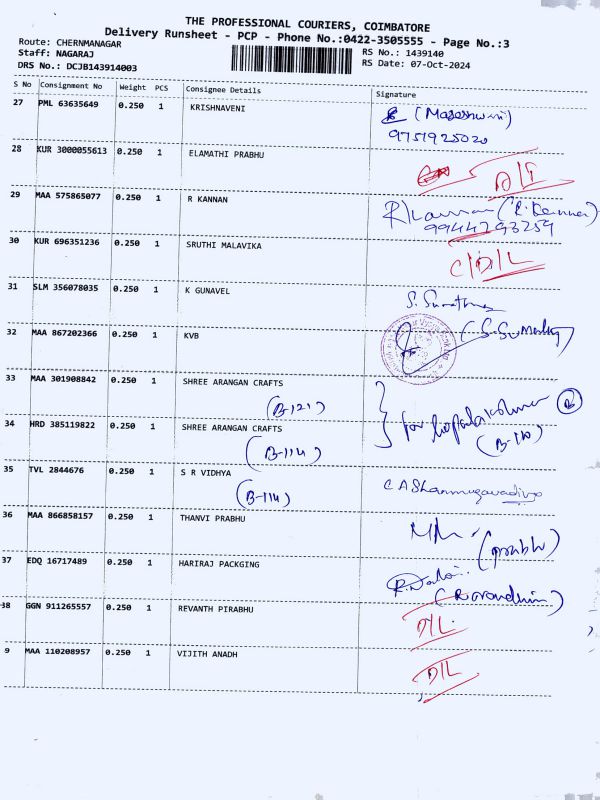 THE PROFESSIONAL COURIERS, COIMBATORE
Delivery Runsheet - PCP - Phone No.:0422-3505555 - Page No.:3
Route: CHERNMANAGAR
Staff: NAGARAJ
DRS No.: DCJB143914003
RS No.: 1439140
RS Date: 07-Oct-2024
S No Consignment No Weight PCS Consignee Details Signature
27 PML 63635649 0.250 1 KRISHNAVENI
9751925020
28 KUR 3000055613 0.250 1 ELAMATHI PRABHU
D/L
29 MAA 575865077 0.250 1 R KANNAN R Kannan (R. Kannan)
9944293259
30 KUR 696351236 0.250 1 SRUTHI MALAVIKA
C/D/L
31 SLM 356078035 0.250 1 K GUNAVEL
32 MAA 867202366 0.250 1 KVB
33 MAA 301908842 0.250 1 SHREE ARANGAN CRAFTS
(B-121)
for
34 HRD 385119822 0.250 1 SHREE ARANGAN CRAFTS
(B-114)
(B-110)
35 TVL 2844676 0.250 1 S R VIDHYA
(B-114)
36 MAA 866858157 0.250 1 THANVI PRABHU
(prabhu)
37 EDQ 16717489 0.250 1 HARIRAJ PACKGING
38 GGN 911265557 0.250 1 REVANTH PIRABHU
D/L
9 MAA 110208957 0.250 1 VIJITH ANADH
D/L